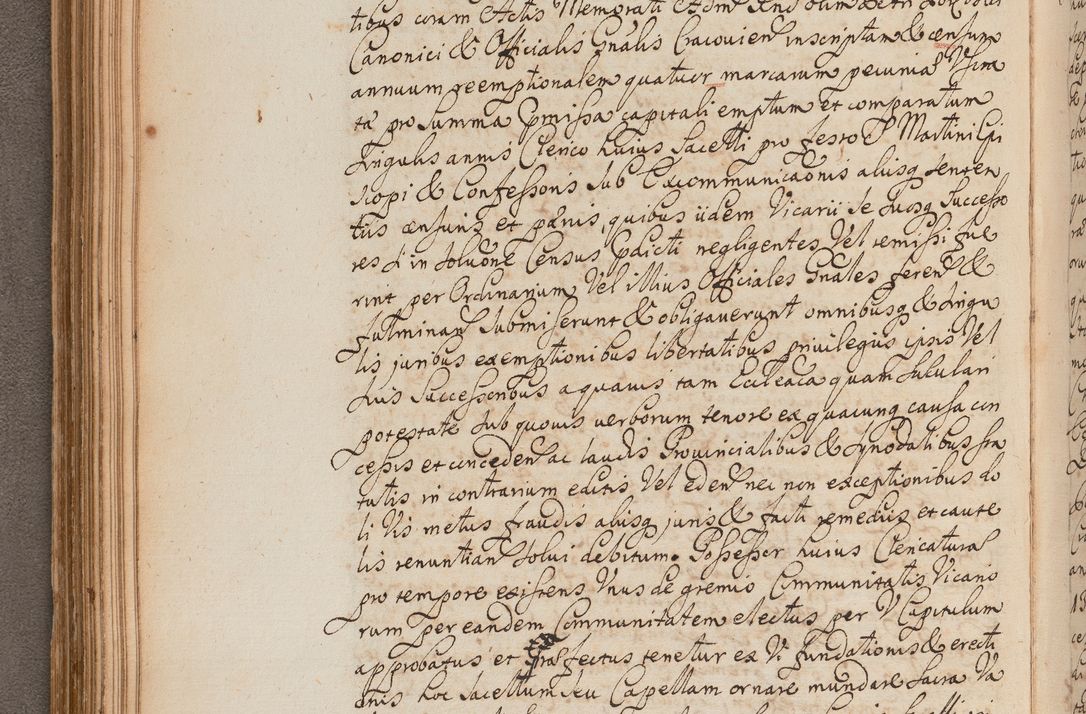 tibus coram Actis Memorati Adm Rnd olim Petri
Canonici & Officialis Gnalis Cracouien inscriptam & censum
annuum reemptionalem quatuor marcarum pecunia Usita
ta pro summa pmissa capitali emptum et comparatum
singulis annis Clerico huius Sacelli pro festo S Martini Epi
scopi & Confessoris sub Excommunicaonis aliisq senten
tiis censuris et pænis, quibus iidem Vicarii se suosq Successo
res si in soluone Census pdicti negligentes Vel remissi fue
rint per Ordinarium Vel illius Officiales Gnales feren &
fulminan submiserunt & obligauerunt omnibusq & singu
lis juribus exemptionibus libertatibus privilegiis ipsis Vel
suis Successoribus a quauis tam Eccleaca quam sæculari
potestate sub quouis uerborum tenore ex quacunq causa con
cessis et conceden ac laudis Prouincialibus & synodalibus sta
tutis in contrarium editis Vel eden nec non exceptionibus do
li Vis metus fraudis aliisq juris & facti remediis et caute
lis renuntian solui debitum. Possessor huius Clericatura
pro tempore existens Unus de gremio Communitatis Vicario
rum per eandem Communitatem electus per V Capitulum
approbatus et præfectus tenetur ex Vi fundationis & erecti
onis hoc Sacellum seu Capellam ornare mundare sacra Va